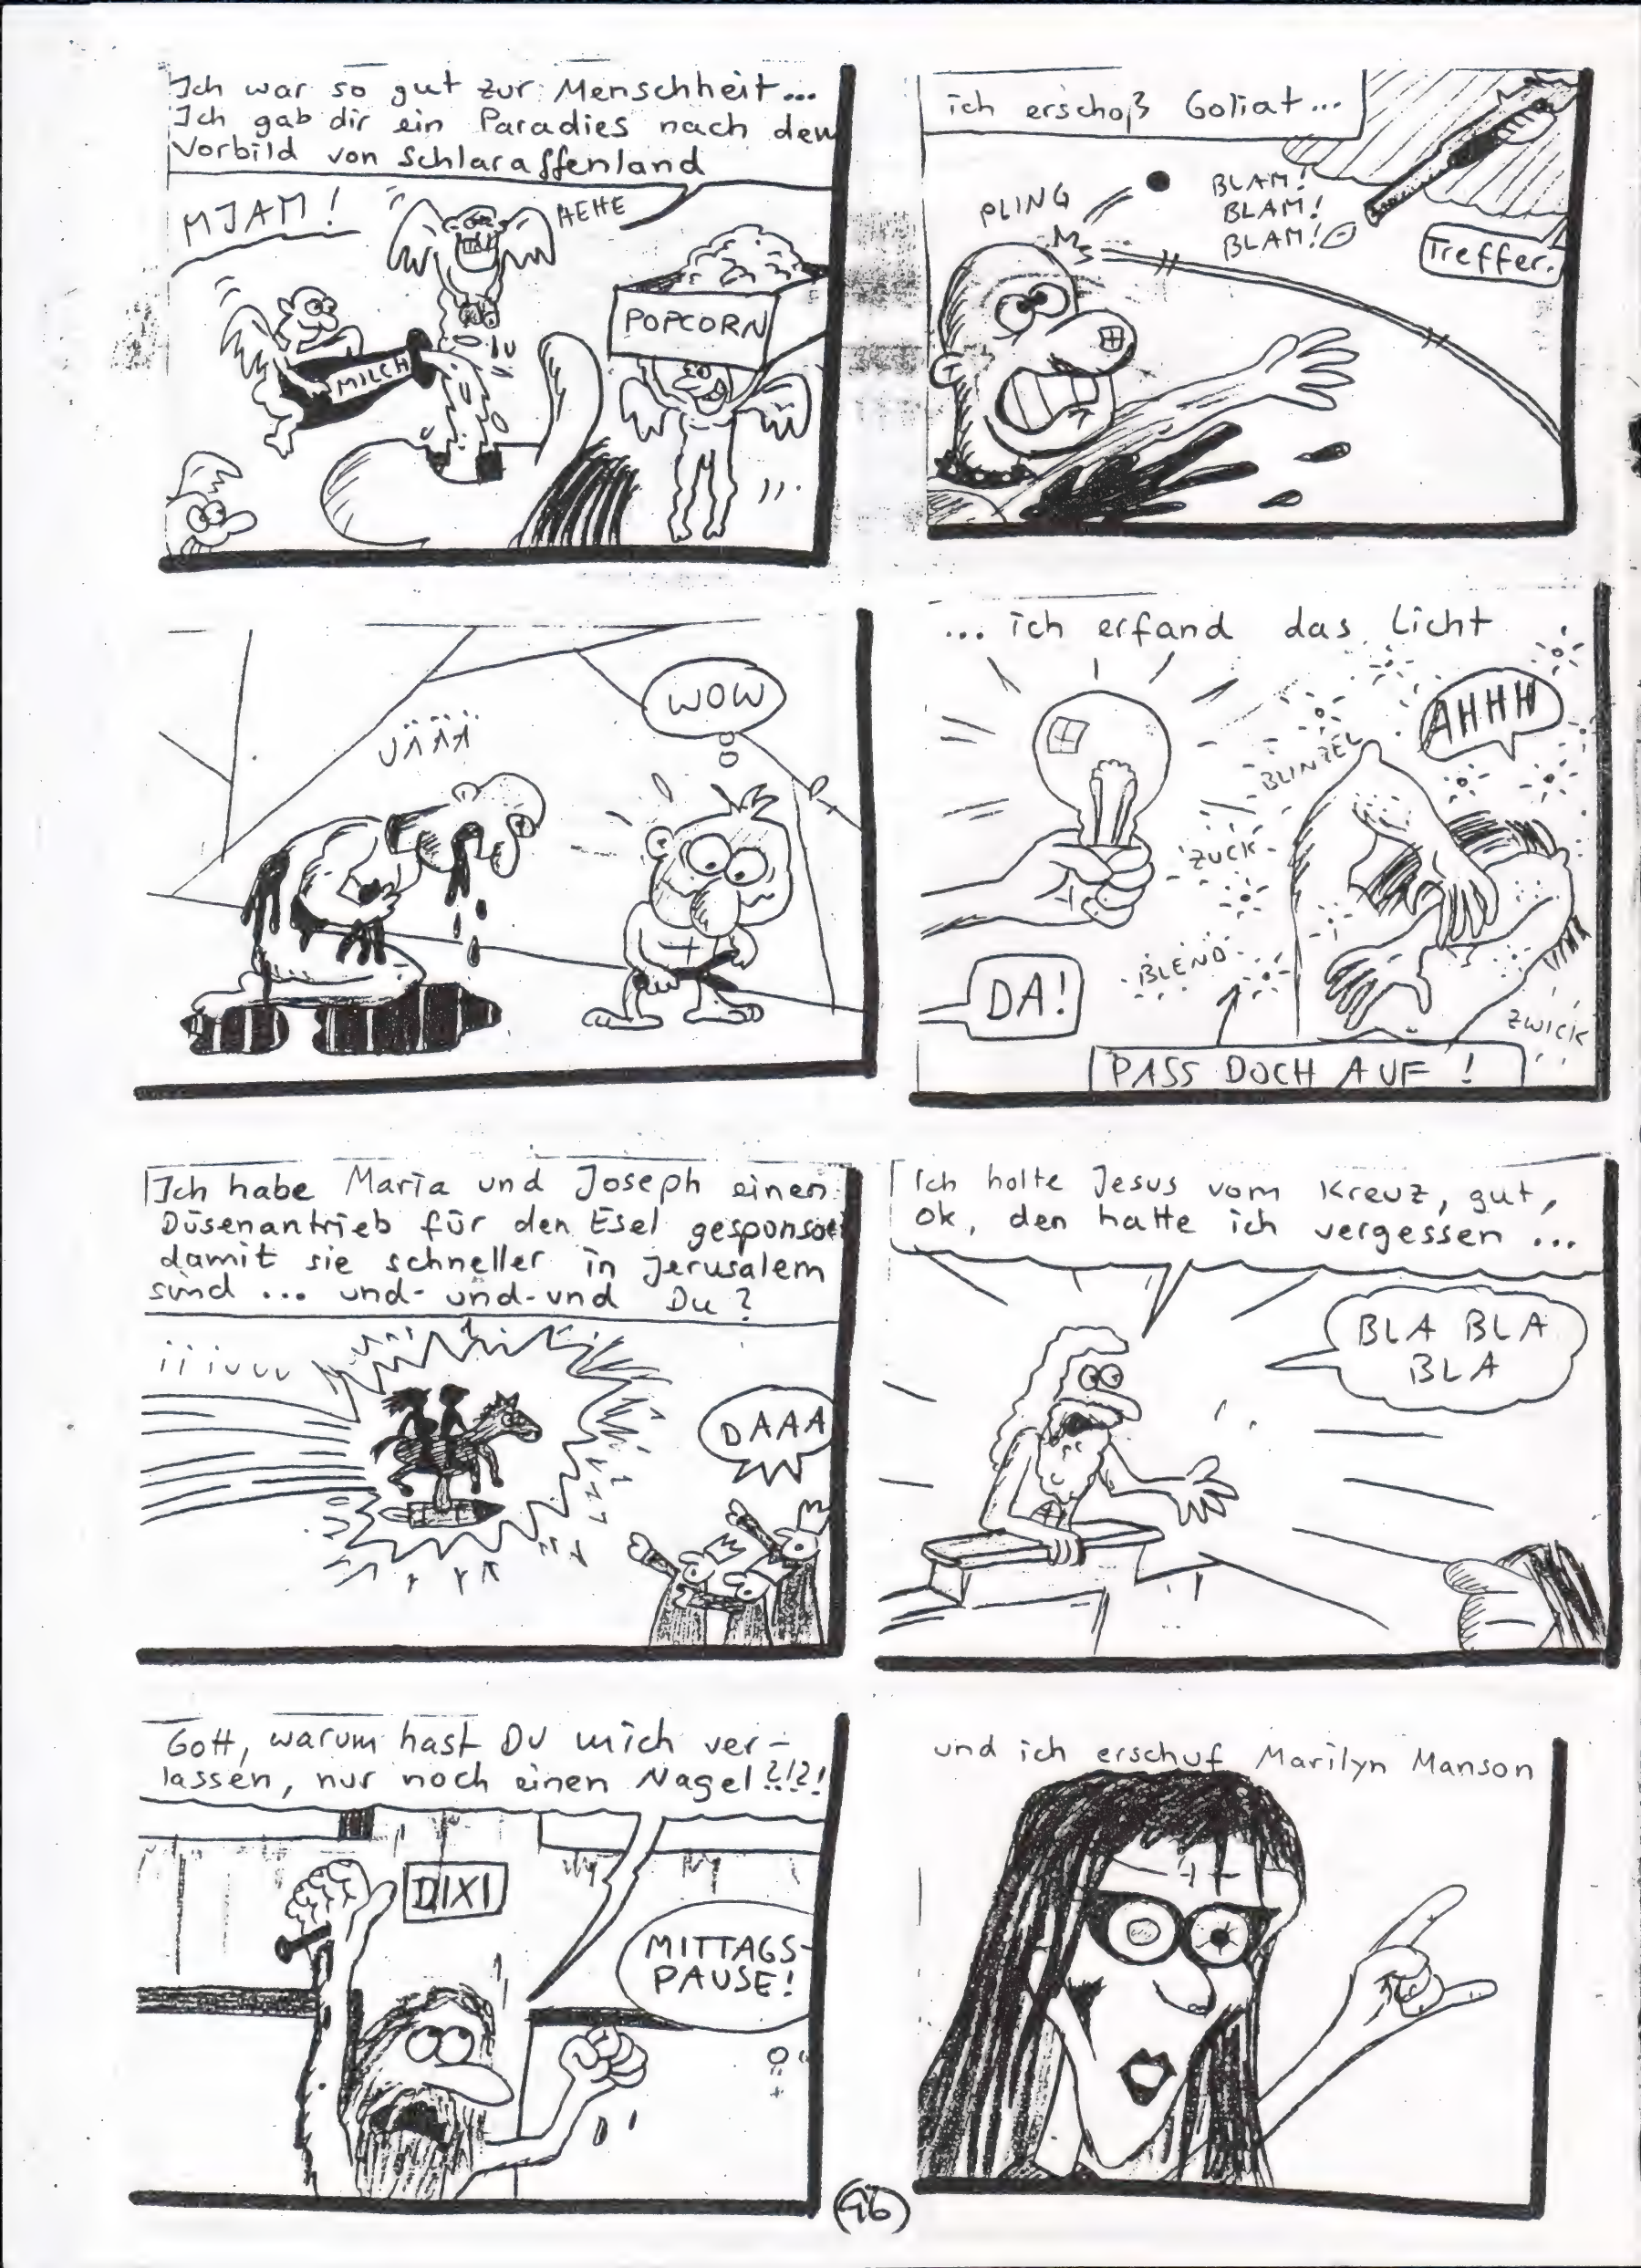 Ich war so gut zur Menschheit...
Ich gab dir ein Paradies nach dem
Vorbild von Schlaraffenland
MJAM!
HEHE
MILCH
POPCORN
ich erschoß Goliat...
PLING
BLAM!
BLAM!
BLAM!
Treffer.
UÄÄÄ
WOW
... ich erfand das Licht
AHHH
BLINZEL
ZUCK
BLEND
DA!
ZWICK
PASS DOCH AUF!
Ich habe Maria und Joseph einen
Düsenantrieb für den Esel gesponsort
damit sie schneller in Jerusalem
sind ... und-und-und Du?
iiiuuu
DAAA
Ich holte Jesus vom Kreuz, gut,
ok, den hatte ich vergessen ...
BLA BLA
BLA
Gott, warum hast Du mich ver-
lassen, nur noch einen Nagel?!?!
DIXI
MITTAGS-
PAUSE!
und ich erschuf Marilyn Manson
96